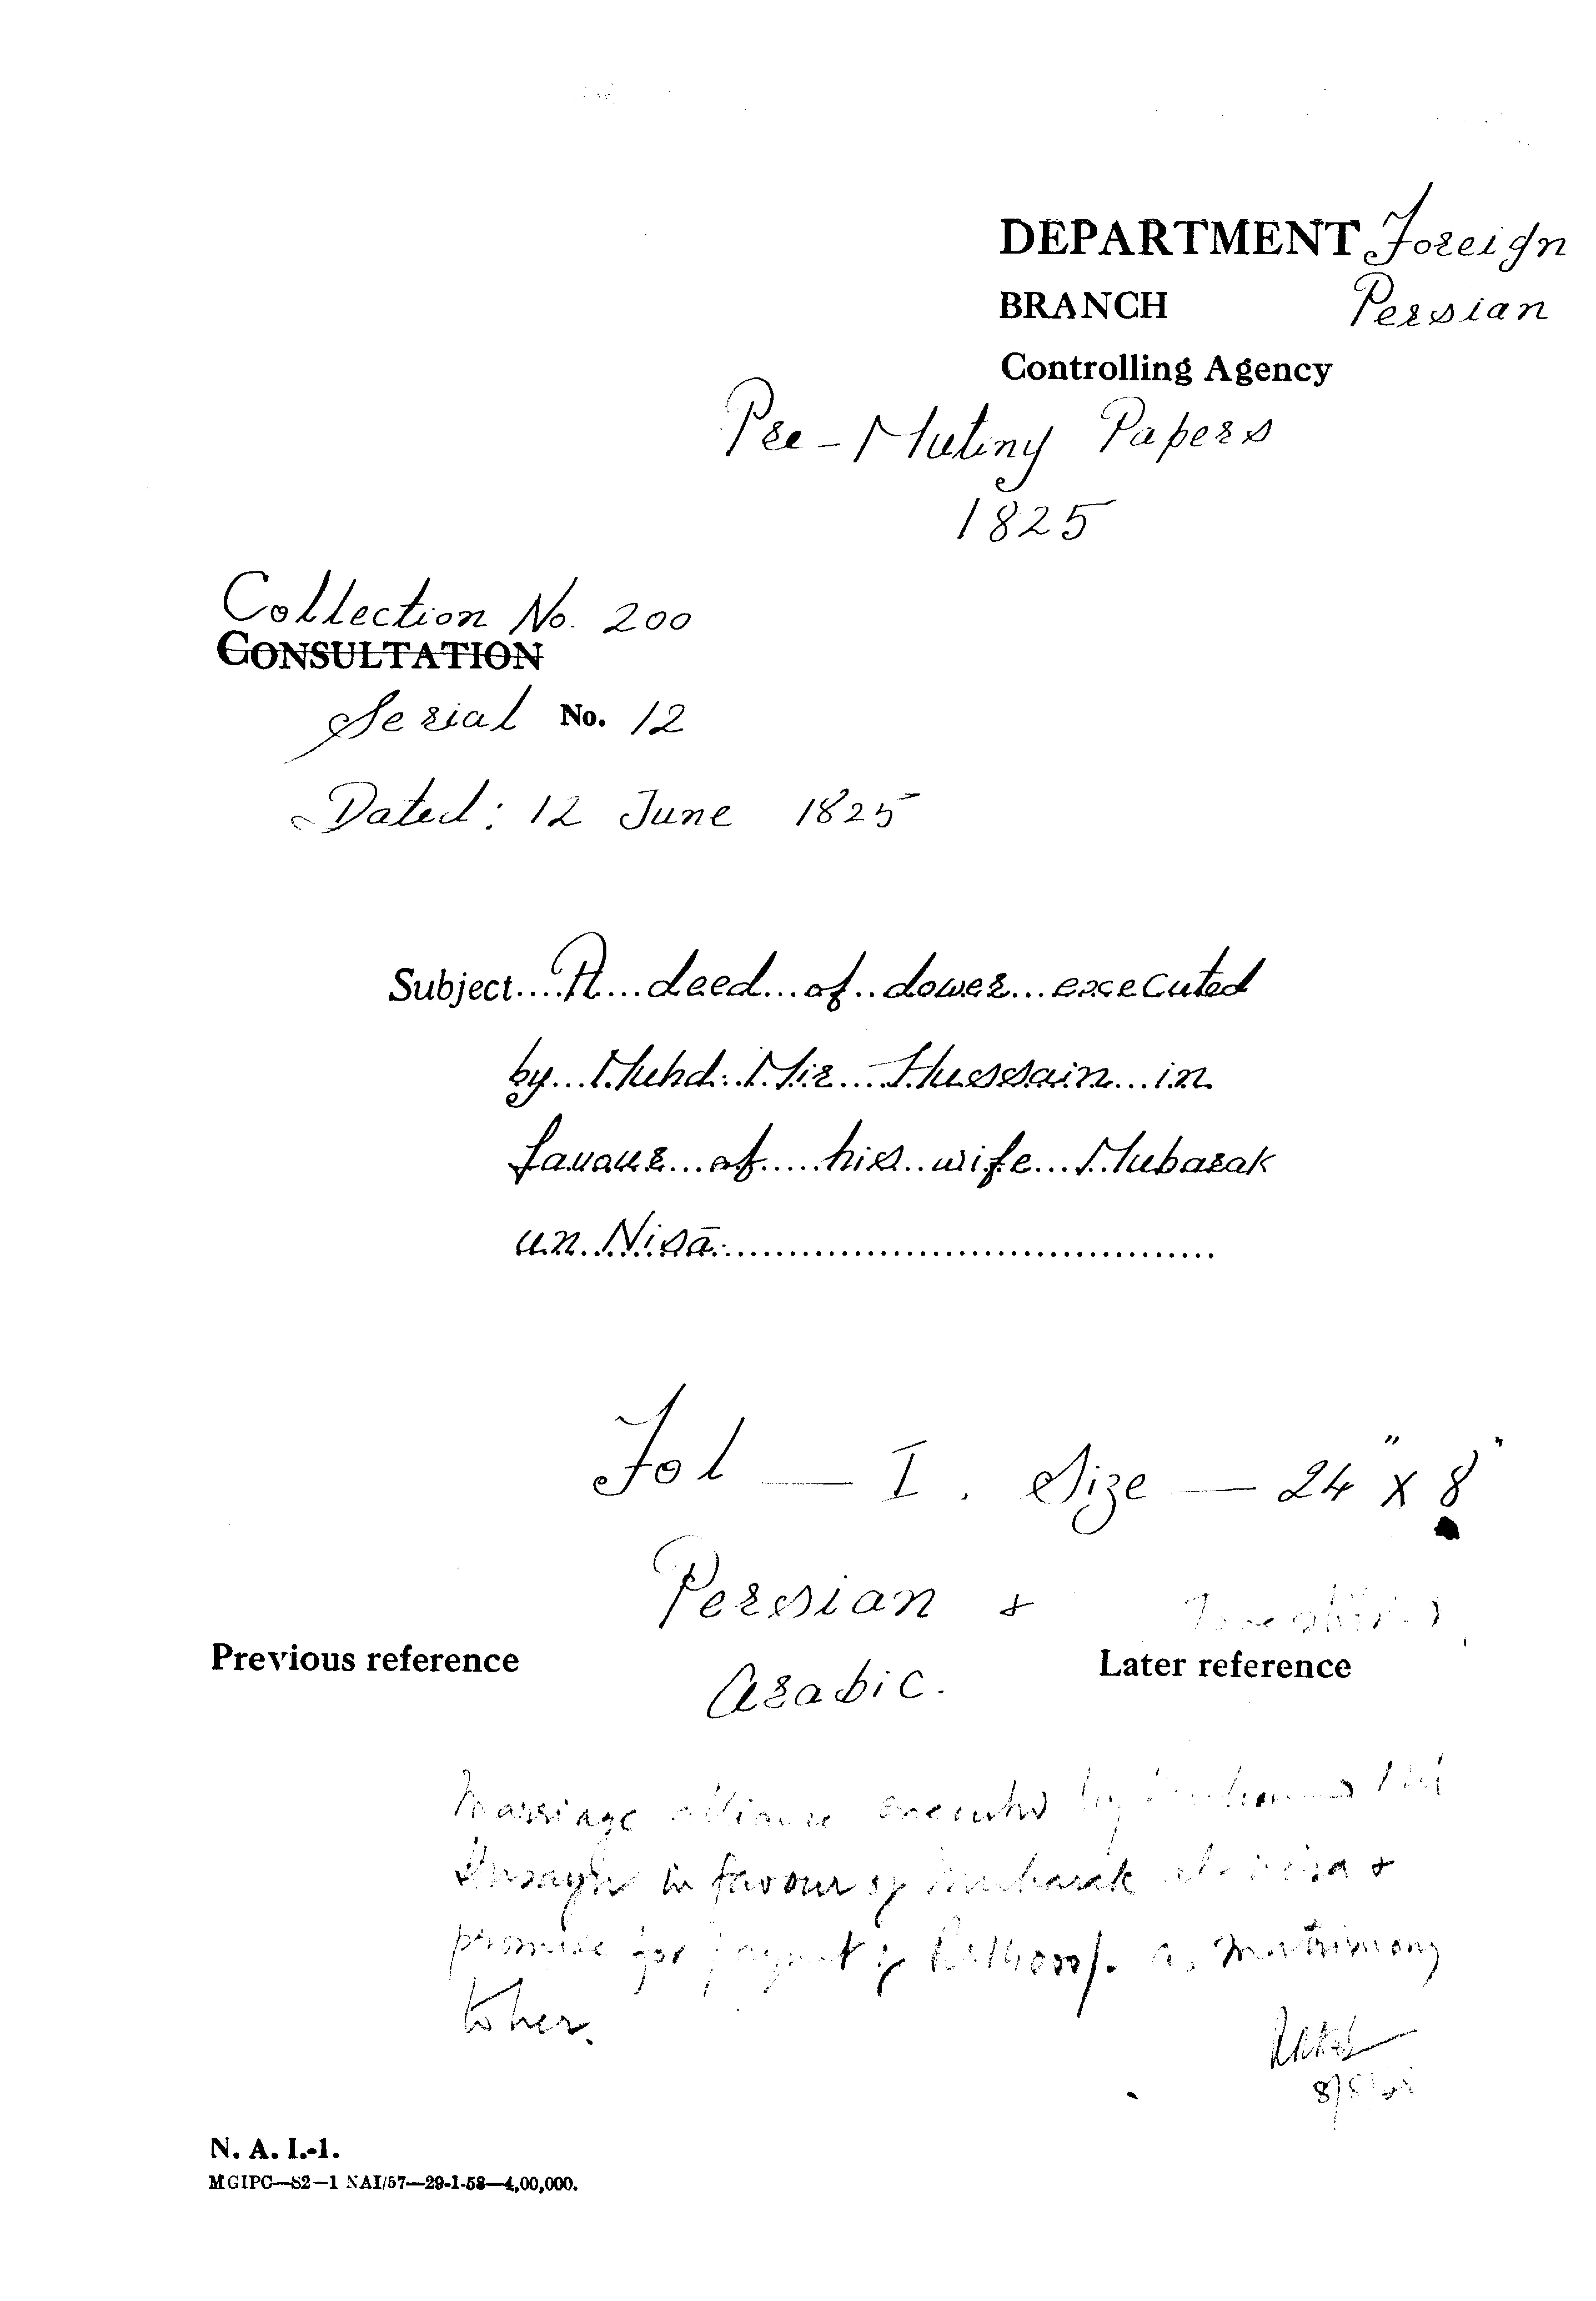 DEPARTMENT Foreign
BRANCH Persian
Controlling Agency
Pre-Mutiny Papers
1825
Collection No. 200
CONSULTATION
Serial No. 12
Dated: 12 June 1825
Subject....A...deed...of..dower...executed
by...Muhd:..Mir....Hussain...in
favour...of.....his..wife...Mubarak
un..Nisā..........................................
Fol — I. Size — 24" x 8"
Persian +
Previous reference
Later reference
Arabic.
Marriage alliance executed by
Husayn in favour of Mubarak +
promise for payment of Rs 14000/- as matrimony
to her.
N. A. I.-1.
MGIPC—S2—1 NAI/57—29-1-58—4,00,000.